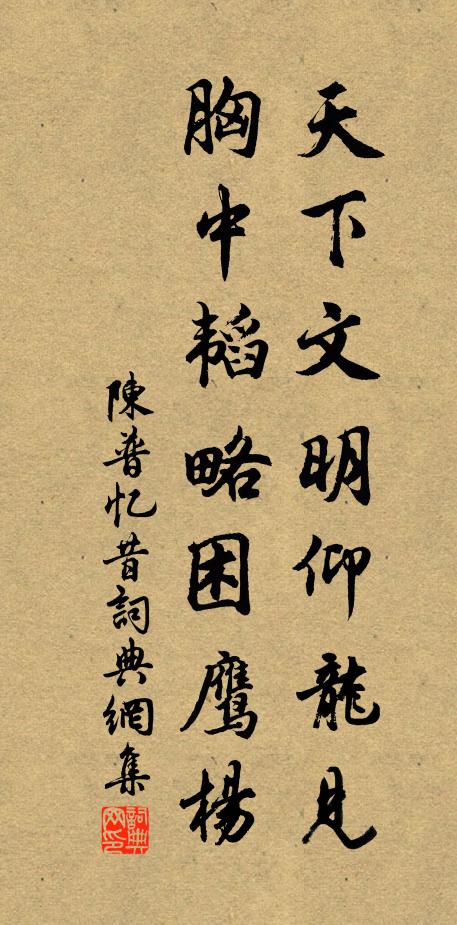 天下文明仰龍見
胸中韬略困鹰楊
陳普忆昔詞典網集
詞典网印